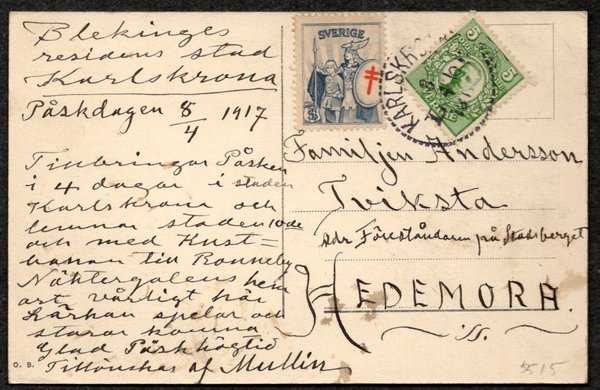 Blekinges
residens stad
Karlskrona
Påskdagen 8/4 1917
Tillbringar Påsken
i 4 dagar i staden
Karlskrona och
lemnar staden 10de
och med Kust=
banan till Ronneby
Näktergalens hem
ort vårligt här
Lärkan spelar och
starar komma
Glad Påskhögtid
Tillönskas af Mullin
O. B.
SVERIGE
KARLSKRONA
5 5
Familjen Andersson
Tviksta
adr Föreståndaren på Stadsberget
HEDEMORA.
5515